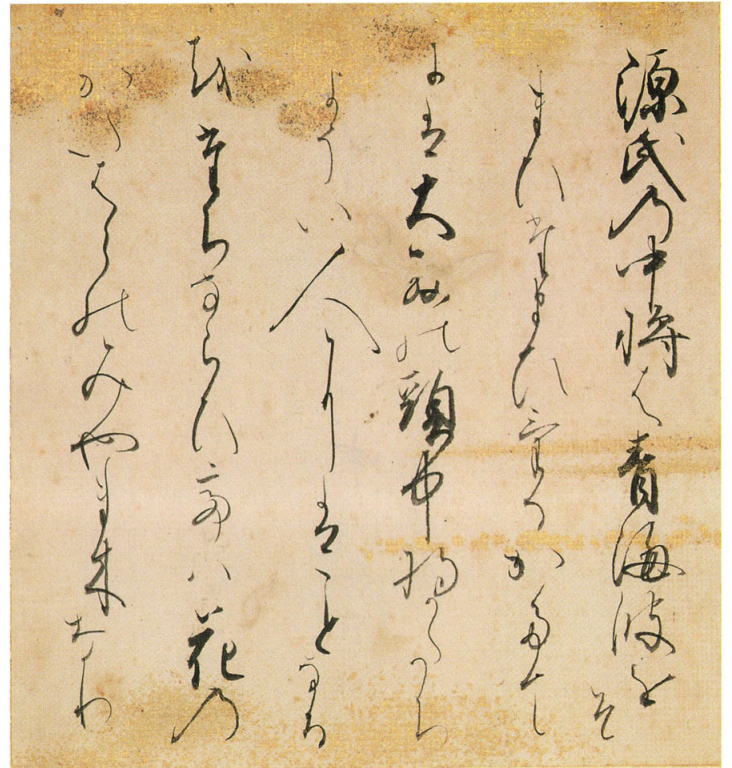 源氏乃中将は青海波をそ
まひたまひけるかたて
には大殿の頭中将かたち
ようい人にはことなる
をたちならひてハ花乃
かたはらのみやま木なり